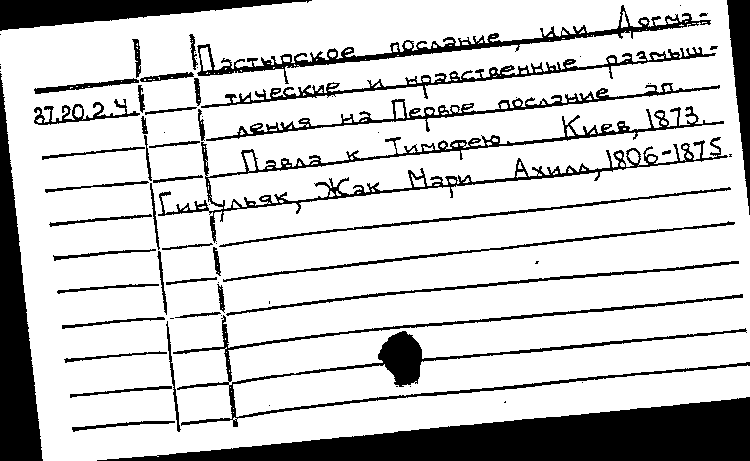 Пастырское послание, или Догма-
37.20.2.4. тические и нравственные размыш-
ления на Первое послание ап.
Павла к Тимофею. Киев, 1873.
Гинульяк, Жак Мари Ахилл, 1806-1875